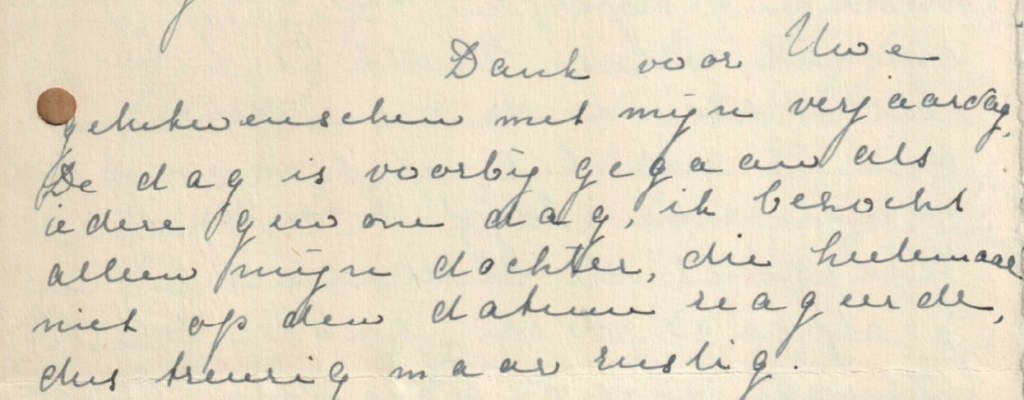 Dank voor Uwe
gelukwenschen met mijn verjaardag.
De dag is voorbij gegaan als
iedere gewone dag, ik bezocht
alleen mijn dochter, die heelemaal
niet op den datum reageerde,
dus treurig maar rustig.